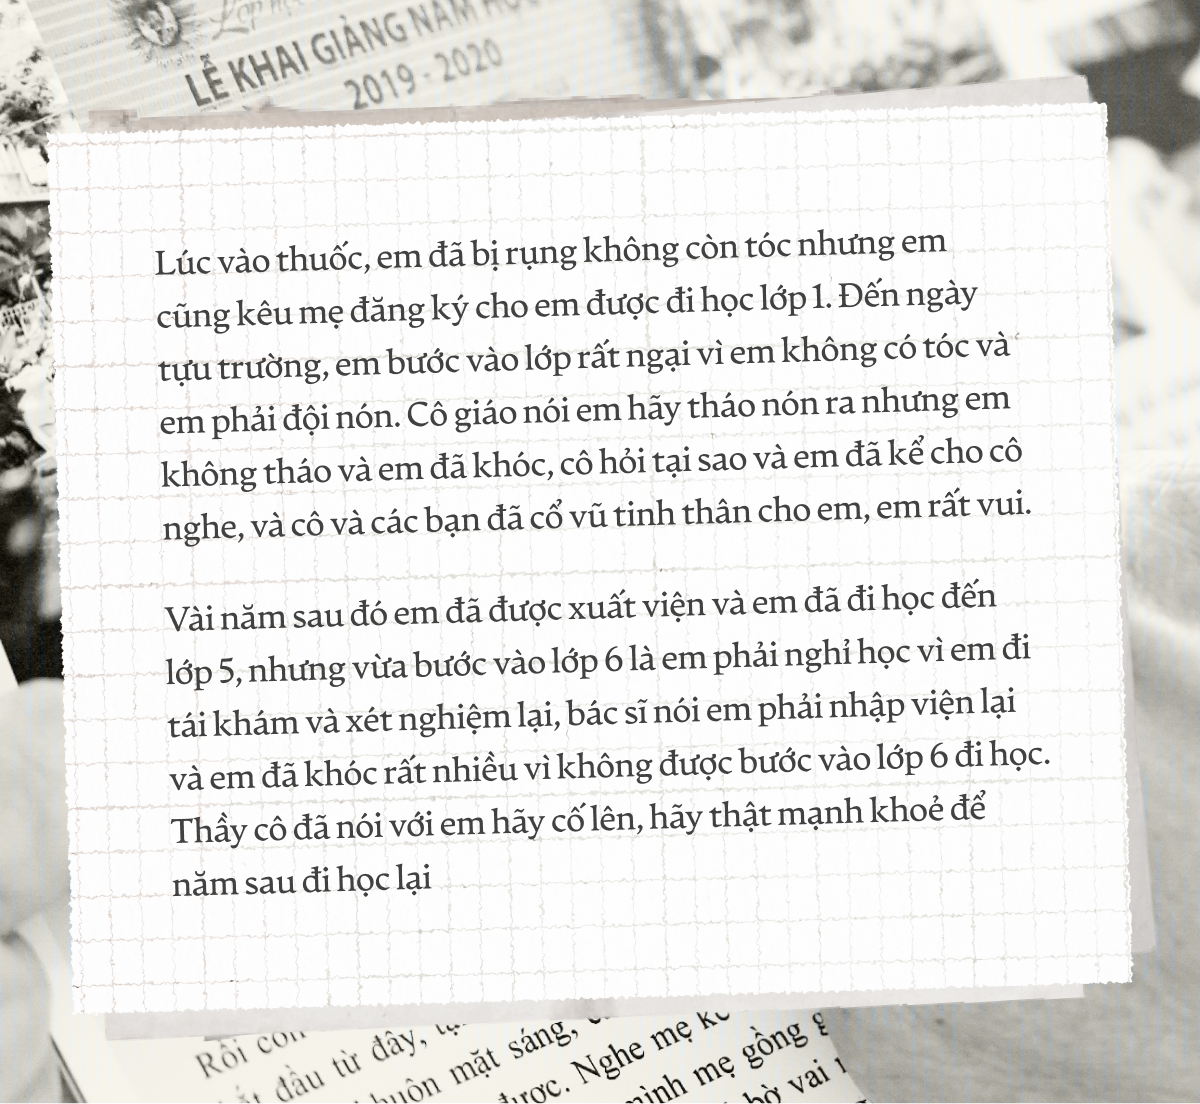 LỄ KHAI GIẢNG NĂM
2019 - 2020
Lúc vào thuốc, em đã bị rụng không còn tóc nhưng em
cũng kêu mẹ đăng ký cho em được đi học lớp 1. Đến ngày
tựu trường, em bước vào lớp rất ngại vì em không có tóc và
em phải đội nón. Cô giáo nói em hãy tháo nón ra nhưng em
không tháo và em đã khóc, cô hỏi tại sao và em đã kể cho cô
nghe, và cô và các bạn đã cổ vũ tinh thân cho em, em rất vui.
Vài năm sau đó em đã được xuất viện và em đã đi học đến
lớp 5, nhưng vừa bước vào lớp 6 là em phải nghỉ học vì em đi
tái khám và xét nghiệm lại, bác sĩ nói em phải nhập viện lại
và em đã khóc rất nhiều vì không được bước vào lớp 6 đi học.
Thầy cô đã nói với em hãy cố lên, hãy thật mạnh khoẻ để
năm sau đi học lại
Rồi con
đầu từ đây,
mặt sáng,
Nghe mẹ
mẹ gồng
bờ vai